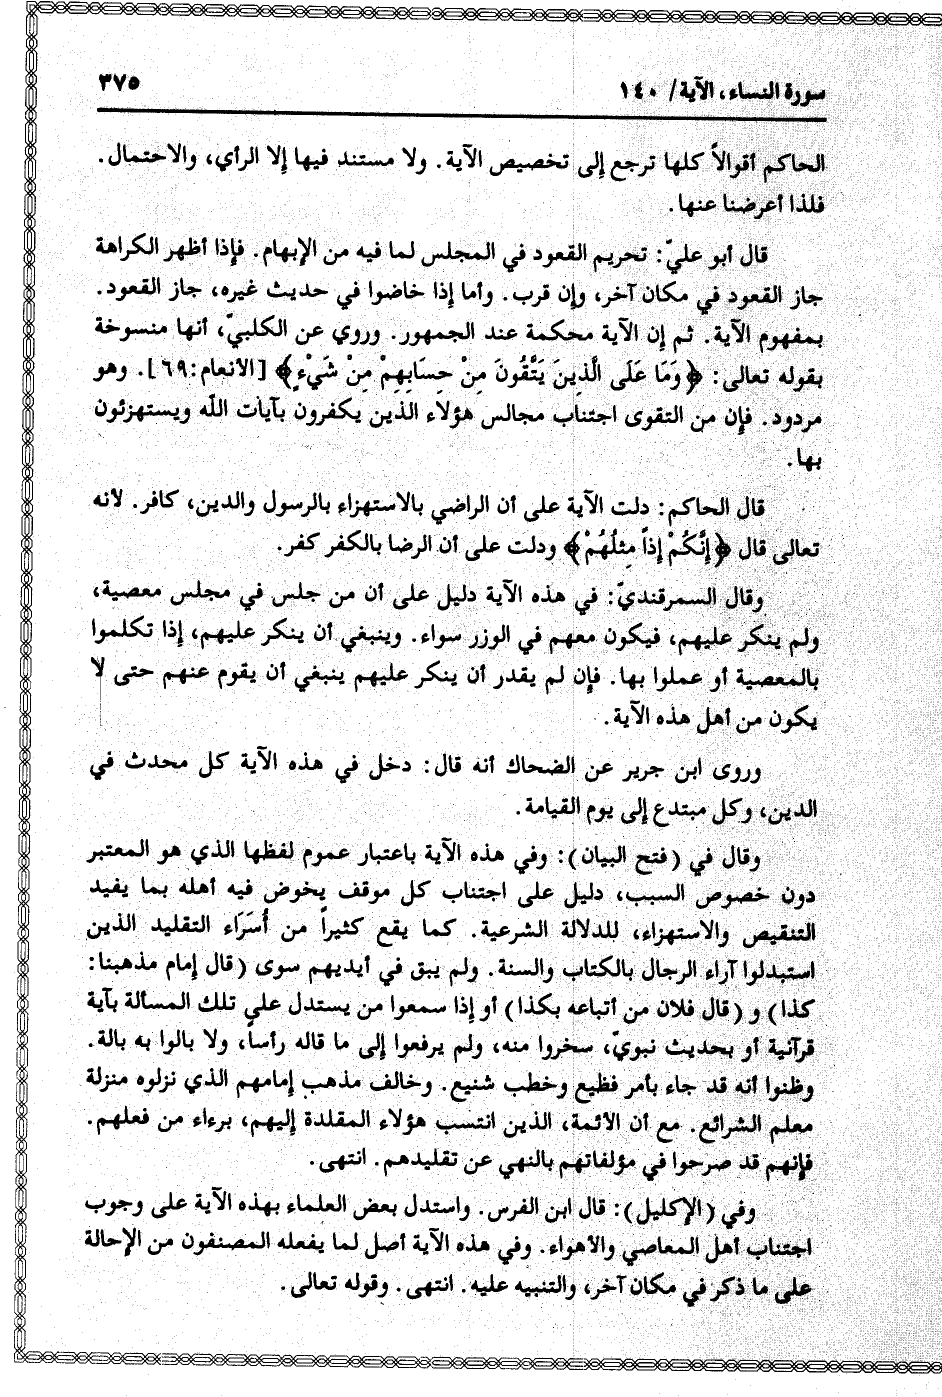 سورة النساء، الآية/ ١٤٠
٣٧٥
الحاكم أقوالاً كلها ترجع إلى تخصيص الآية. ولا مستند فيها إلا الرأي، والاحتمال.
فلذا أعرضنا عنها.
قال أبو عليّ: تحريم القعود في المجلس لما فيه من الإبهام. فإذا أظهر الكراهة
جاز القعود في مكان آخر، وإن قرب. وأما إذا خاضوا في حديث غيره، جاز القعود.
بمفهوم الآية. ثم إن الآية محكمة عند الجمهور. وروي عن الكلبيّ، أنها منسوخة
بقوله تعالى: ﴿وَمَا عَلَى الَّذِينَ يَتَّقُونَ مِنْ حِسَابِهِمْ مِنْ شَيْءٍ﴾ [الأنعام:٦٩]. وهو
مردود. فإن من التقوى اجتناب مجالس هؤلاء الذين يكفرون بآيات اللّه ويستهزئون
بها.
قال الحاكم: دلت الآية على أن الراضي بالاستهزاء بالرسول والدين، كافر. لأنه
تعالى قال ﴿إِنَّكُمْ إِذاً مِثلُهُمْ﴾ ودلت على أن الرضا بالكفر كفر.
وقال السمرقنديّ: في هذه الآية دليل على أن من جلس في مجلس معصية،
ولم ينكر عليهم، فيكون معهم في الوزر سواء. وينبغي أن ينكر عليهم، إذا تكلموا
بالمعصية أو عملوا بها. فإن لم يقدر أن ينكر عليهم ينبغي أن يقوم عنهم حتى لا
يكون من أهل هذه الآية.
وروى ابن جرير عن الضحاك أنه قال: دخل في هذه الآية كل محدث في
الدين، وكل مبتدع إلى يوم القيامة.
وقال في (فتح البيان): وفي هذه الآية باعتبار عموم لفظها الذي هو المعتبر
دون خصوص السبب، دليل على اجتناب كل موقف يخوض فيه أهله بما يفيد
التنقيص والاستهزاء، للدلالة الشرعية. كما يقع كثيراً من أُسَرَاء التقليد الذين
استبدلوا آراء الرجال بالكتاب والسنة. ولم يبق في أيديهم سوى (قال إمام مذهبنا:
كذا) و (قال فلان من أتباعه بكذا) أو إذا سمعوا من يستدل على تلك المسألة بآية
قرآنية أو بحديث نبويّ، سخروا منه، ولم يرفعوا إلى ما قاله رأساً، ولا بالوا به بالة.
وظنوا أنه قد جاء بأمر فظيع وخطب شنيع. وخالف مذهب إمامهم الذي نزلوه منزلة
معلم الشرائع. مع أن الأئمة، الذين انتسب هؤلاء المقلدة إليهم، برءاء من فعلهم.
فإنهم قد صرحوا في مؤلفاتهم بالنهي عن تقليدهم. انتهى.
وفي (الإكليل): قال ابن الفرس. واستدل بعض العلماء بهذه الآية على وجوب
اجتناب أهل المعاصي والأهواء. وفي هذه الآية أصل لما يفعله المصنفون من الإحالة
على ما ذكر في مكان آخر، والتنبيه عليه. انتهى. وقوله تعالى.